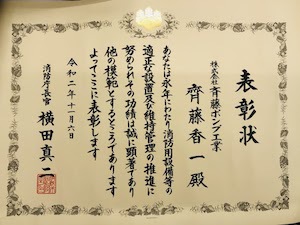 表彰状
株式会社 斉藤ポンプ工業
齊藤香一殿
あなたは永年にわたり消防用設備等の
適正な設置及び維持管理の推進に
努められその功績は誠に顕著であり
他の模範とするところであります
よってここに表彰します
令和二年十一月六日
消防庁長官 横田真二